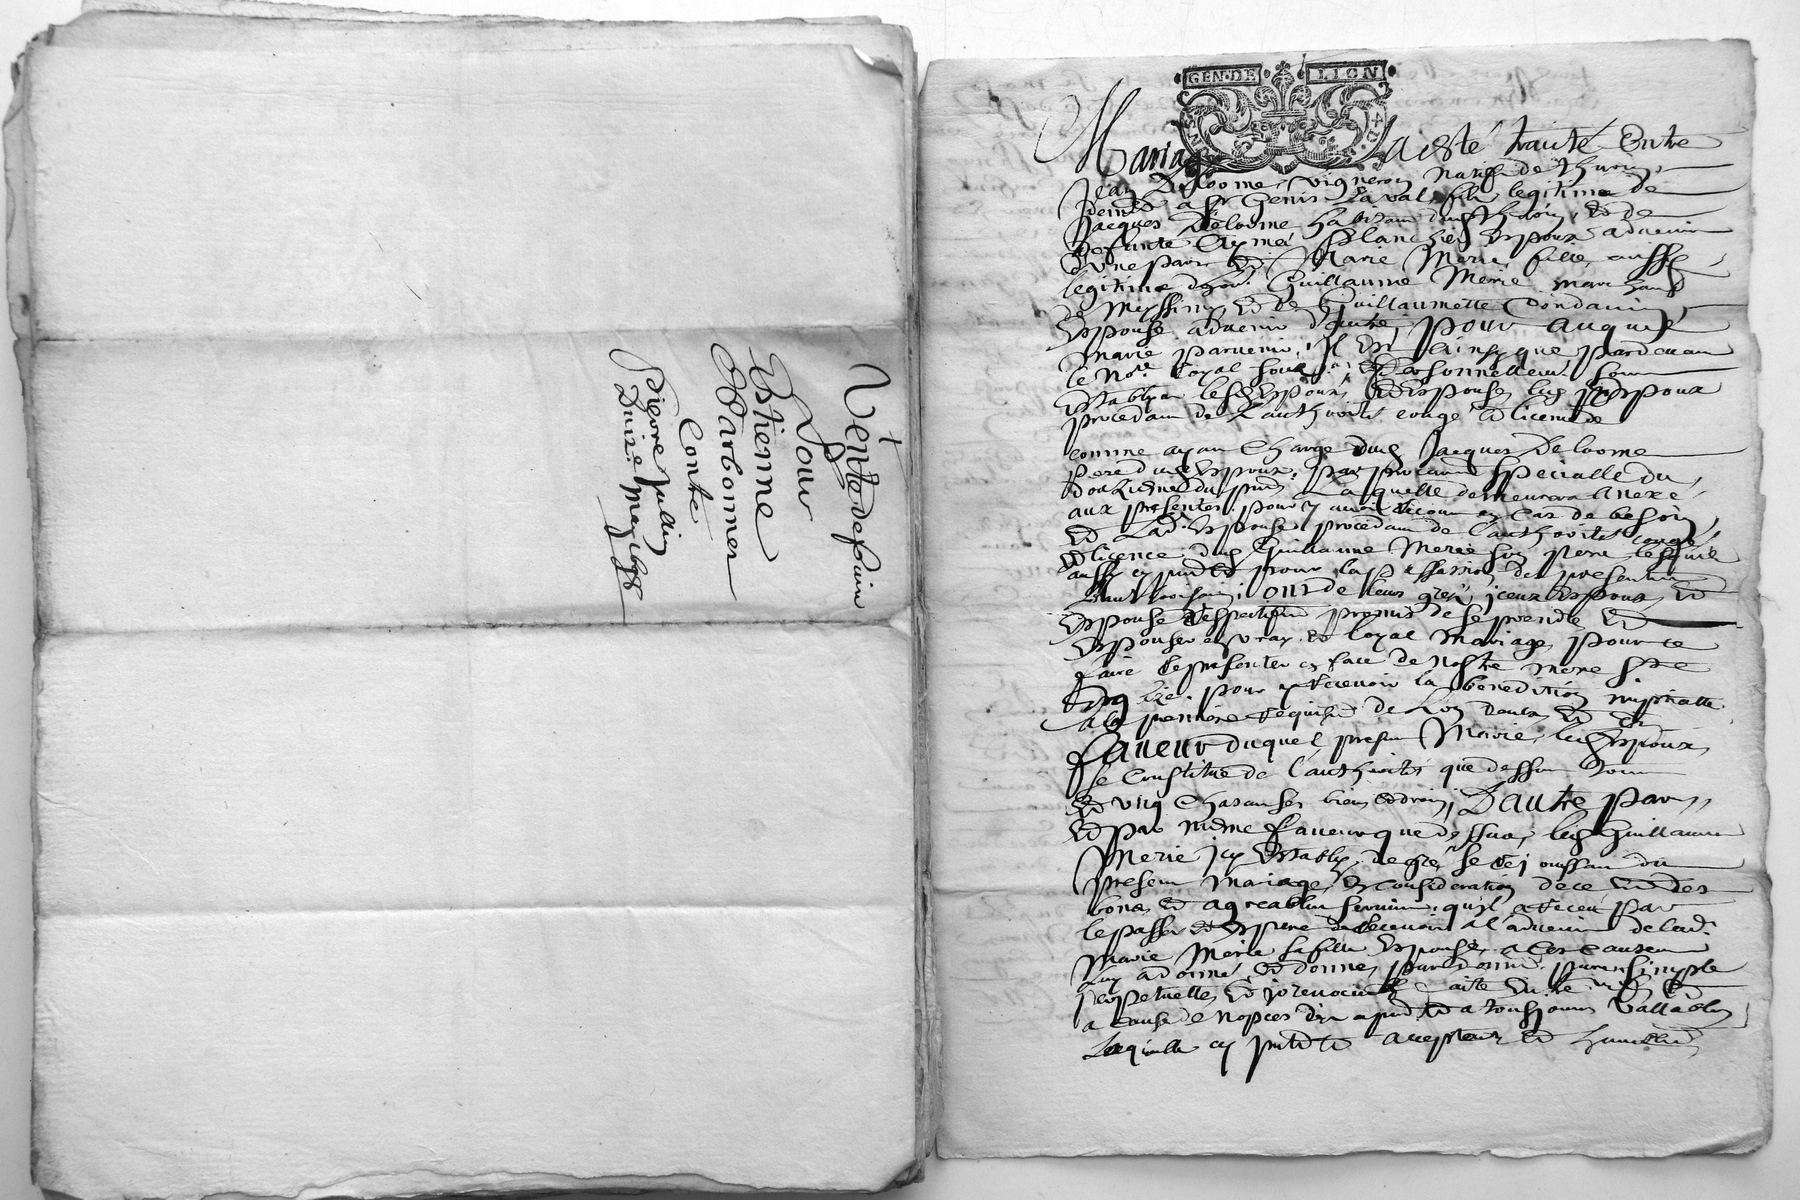 Vente de foin
Pour
Estienne
Charbonner
Conte
Pierre Jullin
Du 12e May 1698
GEN·DE LION
Mariage a esté traité Entre
Jean Delorme, vigneron natif de thurin,
a St Genis Laval, filz legitime de
Jacques Delorme habitant dud thurin, Et de
defunte Aymé Blanchet Espoux advenir
d'une part Et Marie Merie fille aussy
legitime d'hon. Guillaume Merie marchand
de Messimy, Et de Guillaumette
Espouse advenir d'autre, pour auquel
marie parvenir, Il Est que pardevant
le Nore royal soubz.né personnellement
Establyz lesd Espoux Et Espouse led Espoux
procedant de l'authorité congé Et licence de
comme ayant Charge dud Jacques Delorme
pere dud Espoux, par procuration specialle du
du laquelle demeurera anexé
aux presentes pour y avoir recours en cas de besoin
Et Lad. Espouse procedant de l'authorité congé
Et licence dud Guillaume Merie son pere
aussy cy pour la des presentes
ont de leurs grez iceux Espoux Et
Espouse respectivement promis de se prendre Et
Espouser en vray Et loyal mariage, pour ce
faire se presenter en face de nostre mere Ste
Eglize, pour y recevoir la benediction nuptialle
a la premiere requise de l'un d'eux Et En
faveur duquel present Marie, led Espoux
se Constitue de l'authorité que dessus tous
Et ung Chascun ses biens Et droits, D'autre part,
Et par mesme faveur que dessus, led Guillaume
Merie icy Estably de gré se rejouissant du
present mariage, En consideration de ce Et des
bons Et agreables services qu'il a receu par
le passé Et Espere de recevoir a l'advenir de lad.
Marie Merie sa fille Espouse, a ces causes
luy a donné, Et donne, par donnation pure simple
perpetuelle, Et irrevocable faite
a cause de nopces a tousjours vallable
Laquelle cy pnte Et acceptant Et